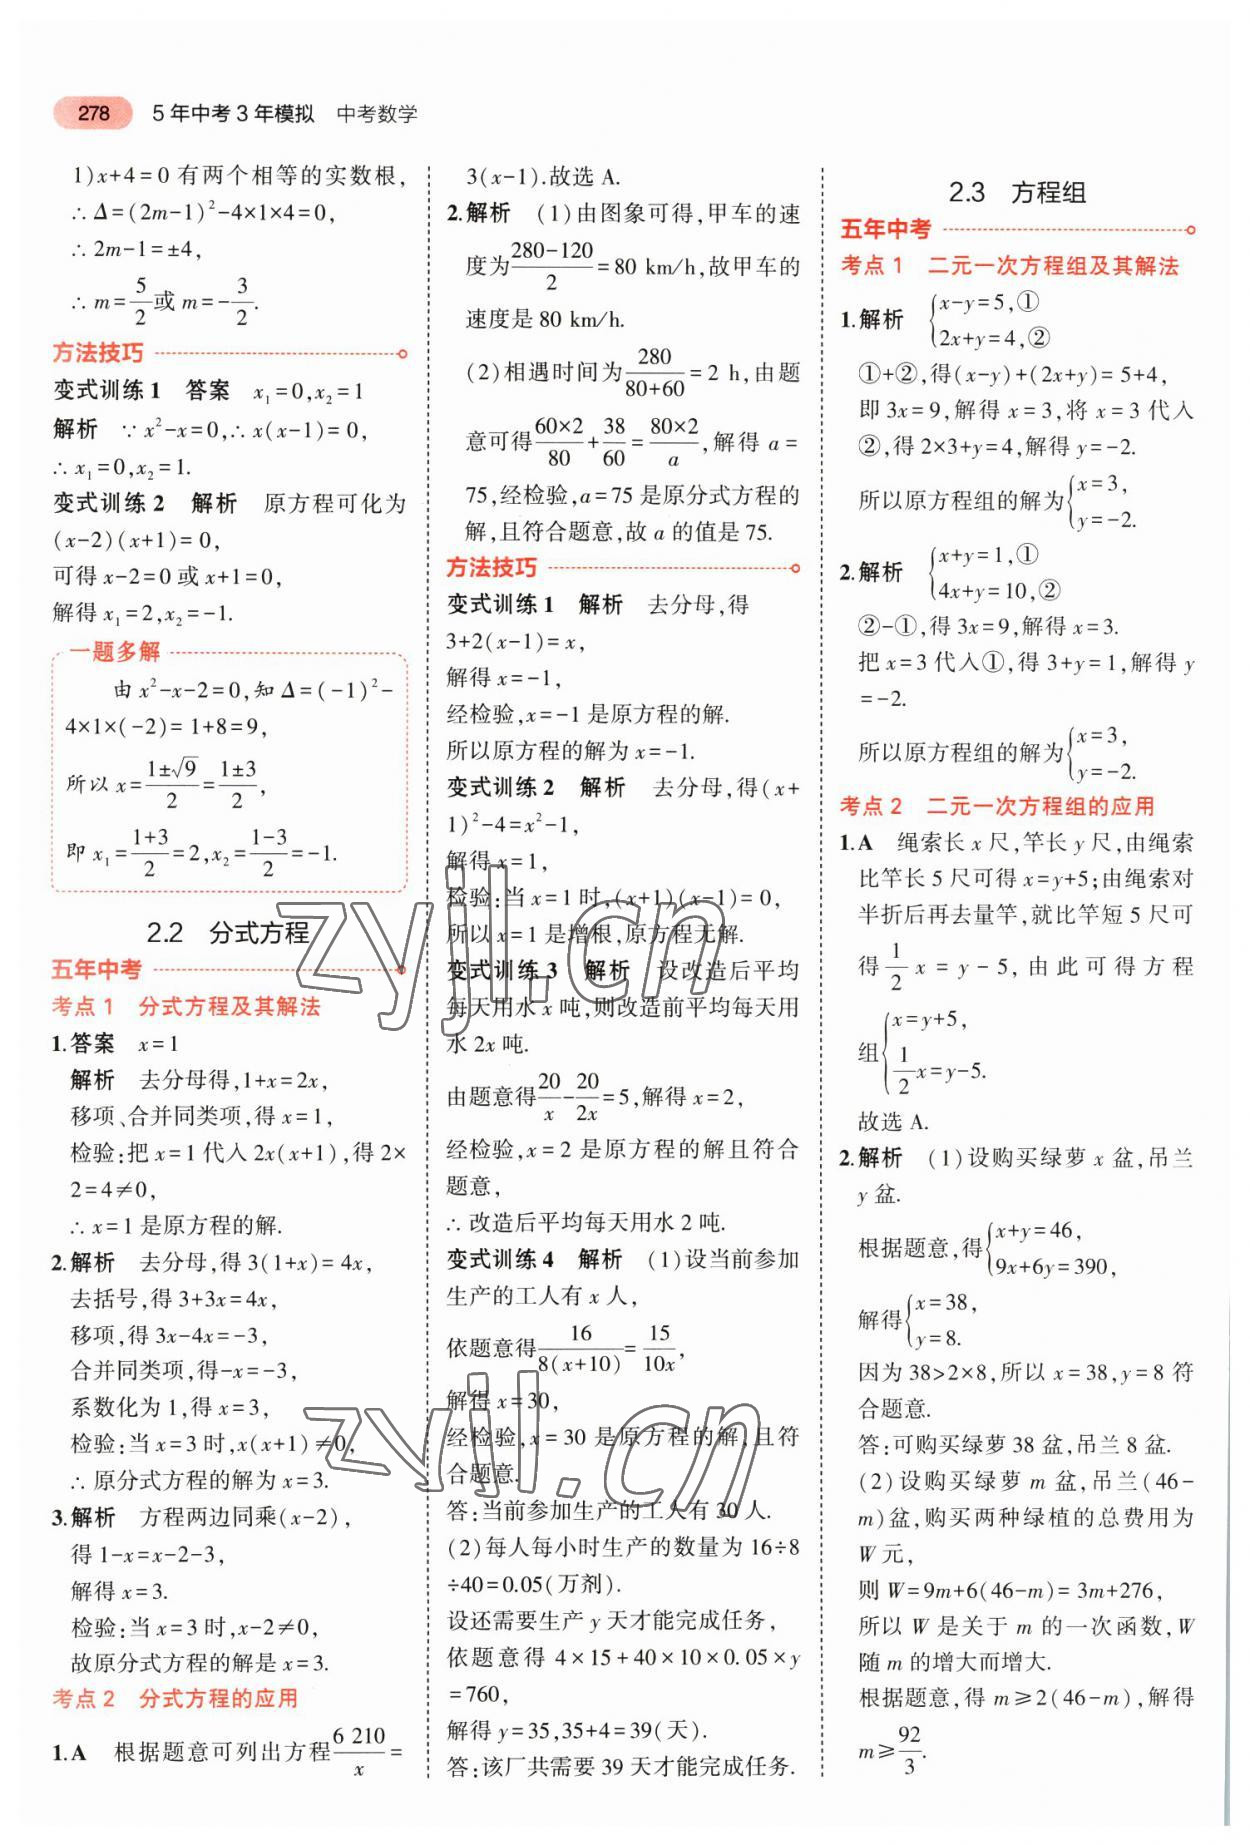 278 5年中考3年模拟 中考数学
1)x+4=0有两个相等的实数根,
∴Δ=(2m-1)²-4×1×4=0,
∴2m-1=±4,
∴m=5/2或m=-3/2.
方法技巧
变式训练1 答案 x₁=0,x₂=1
解析 ∵x²-x=0,∴x(x-1)=0,
∴x₁=0,x₂=1.
变式训练2 解析 原方程可化为
(x-2)(x+1)=0,
可得x-2=0或x+1=0,
解得x₁=2,x₂=-1.
一题多解
由x²-x-2=0,知Δ=(-1)²-
4×1×(-2)=1+8=9,
所以x=(1±√9)/2=(1±3)/2,
即x₁=(1+3)/2=2,x₂=(1-3)/2=-1.
2.2 分式方程
五年中考
考点1 分式方程及其解法
1.答案 x=1
解析 去分母得,1+x=2x,
移项、合并同类项,得x=1,
检验:把x=1代入2x(x+1),得2×
2=4≠0,
∴x=1是原方程的解.
2.解析 去分母,得3(1+x)=4x,
去括号,得3+3x=4x,
移项,得3x-4x=-3,
合并同类项,得-x=-3,
系数化为1,得x=3,
检验:当x=3时,x(x+1)≠0,
∴原分式方程的解为x=3.
3.解析 方程两边同乘(x-2),
得1-x=x-2-3,
解得x=3.
检验:当x=3时,x-2≠0,
故原分式方程的解是x=3.
考点2 分式方程的应用
1.A 根据题意可列出方程6 210/x=
3(x-1).故选A.
2.解析 (1)由图象可得,甲车的速
度为(280-120)/2=80 km/h,故甲车的
速度是80 km/h.
(2)相遇时间为280/(80+60)=2 h,由题
意可得(60×2)/80+38/60=(80×2)/a,解得a=
75,经检验,a=75是原分式方程的
解,且符合题意,故a的值是75.
方法技巧
变式训练1 解析 去分母,得
3+2(x-1)=x,
解得x=-1,
经检验,x=-1是原方程的解.
所以原方程的解为x=-1.
变式训练2 解析 去分母,得(x+
1)²-4=x²-1,
解得x=1,
检验:当x=1时,(x+1)(x-1)=0,
所以x=1是增根,原方程无解.
变式训练3 解析 设改造后平均
每天用水x吨,则改造前平均每天用
水2x吨.
由题意得20/x-20/2x=5,解得x=2,
经检验,x=2是原方程的解且符合
题意,
∴改造后平均每天用水2吨.
变式训练4 解析 (1)设当前参加
生产的工人有x人,
依题意得16/8(x+10)=15/10x,
解得x=30,
经检验,x=30是原方程的解,且符
合题意.
答:当前参加生产的工人有30人.
(2)每人每小时生产的数量为16÷8
÷40=0.05(万剂).
设还需要生产y天才能完成任务,
依题意得4×15+40×10×0.05×y
=760,
解得y=35,35+4=39(天).
答:该厂共需要39天才能完成任务.
2.3 方程组
五年中考
考点1 二元一次方程组及其解法
1.解析 {x-y=5,①
2x+y=4,②
①+②,得(x-y)+(2x+y)=5+4,
即3x=9,解得x=3,将x=3代入
②,得2×3+y=4,解得y=-2.
所以原方程组的解为{x=3,
y=-2.
2.解析 {x+y=1,①
4x+y=10,②
②-①,得3x=9,解得x=3.
把x=3代入①,得3+y=1,解得y
=-2.
所以原方程组的解为{x=3,
y=-2.
考点2 二元一次方程组的应用
1.A 绳索长x尺,竿长y尺,由绳索
比竿长5尺可得x=y+5;由绳索对
半折后再去量竿,就比竿短5尺可
得1/2x=y-5,由此可得方程
组{x=y+5,
1/2x=y-5.
故选A.
2.解析 (1)设购买绿萝x盆,吊兰
y盆.
根据题意,得{x+y=46,
9x+6y=390,
解得{x=38,
y=8.
因为38>2×8,所以x=38,y=8符
合题意.
答:可购买绿萝38盆,吊兰8盆.
(2)设购买绿萝m盆,吊兰(46-
m)盆,购买两种绿植的总费用为
W元,
则W=9m+6(46-m)=3m+276,
所以W是关于m的一次函数,W
随m的增大而增大.
根据题意,得m≥2(46-m),解得
m≥92/3.
zyjl.cn
zyjl.cn